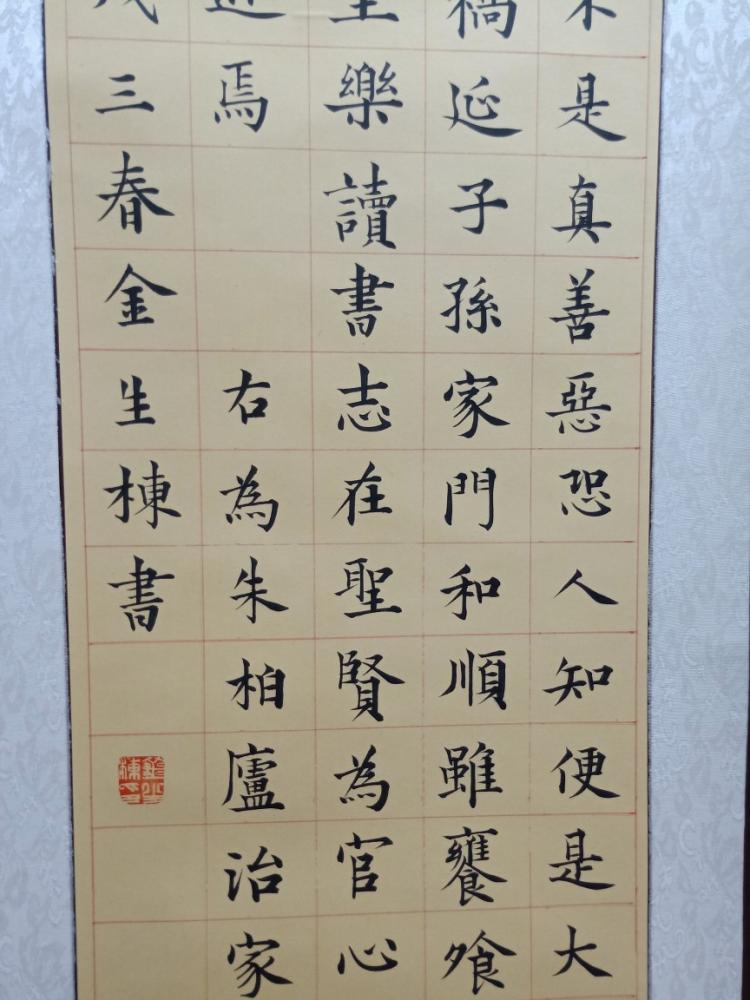 不是真善惡恐人知便是大
禍延子孫家門和順雖饔飧
至樂讀書志在聖賢為官心
近焉 右為朱柏廬治家
三春金生棟書